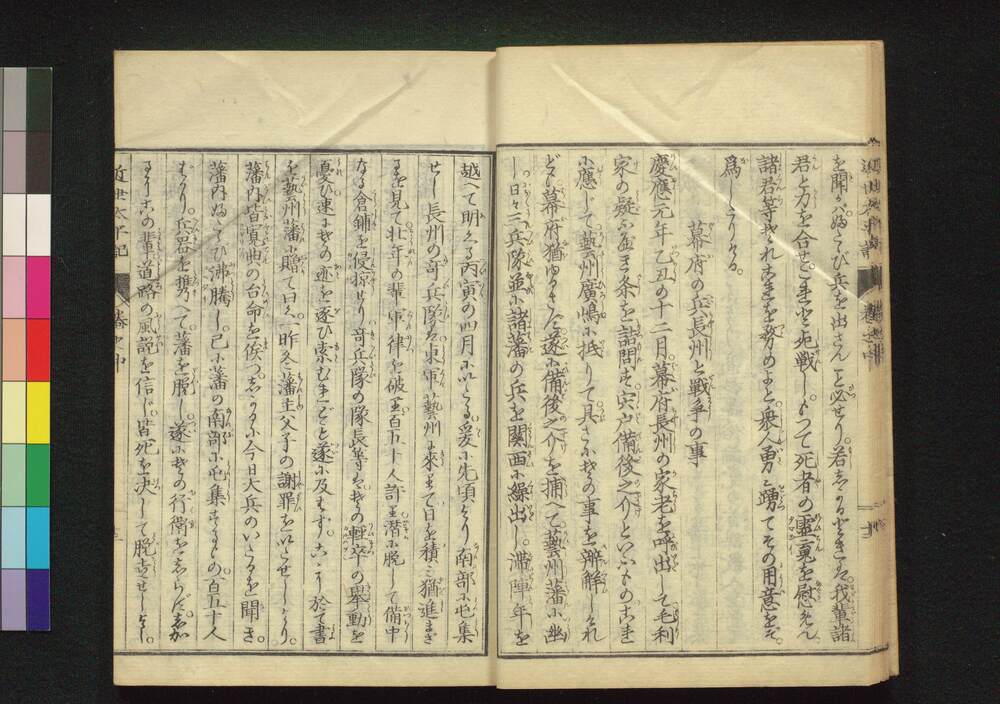 を聞かバふたゝび兵を出さんこと必せり。若しかるときは。我輩諸
君と力を合せ。こゝを死戦し。もつて死者の霊魂を慰めん。
諸君等それこれを努めよと。衆人勇ミ踊てその用意をぞ。
爲しうりける。
幕府の兵長州と戦争の事
慶應元年乙丑の十二月。幕府長州の家老を呼出して毛利
家の疑ふ可き条を詰問す。宍戸備後之介といふものこれ
に應じて。藝州廣嶋に抵りて具さにその事を辨解しけれ
ども。幕府猶ゆるさず。遂に備後之介を捕へて。藝州藩に幽
し。日々三兵隊並に諸藩の兵を関西に繰出し。滞陣年を
越へて明くる丙寅の四月にいたる。爰に先頃より南部に屯集
せし。長州の奇兵隊ハ。東軍藝州に來りて日を積ミ猶進まざ
るを見て。壮年の輩軍律を破り。百五十人許り潜に脱して備中
なる倉鋪を侵掠せり。奇兵隊の隊長等はその軽卒の舉動を
憂ひ。速にその迹を逐ひ索むれども遂に及ばず。こゝに於て書
を藝州藩に贈て曰く。昨冬藩主父子の謝罪をいたせしより。
藩内皆寛典の台命を俟つ。しかるに今日大兵のいたるを聞き。
藩内ふたゝび沸騰し。已に藩の南部に屯集するもの。百五十人
ばかり。兵器を携へて藩を脱し。遂にその行衛をしらず。蓋
しこの輩道路の風説を信じ。皆死を决して脱走せしなり。
近世太平記
巻之中